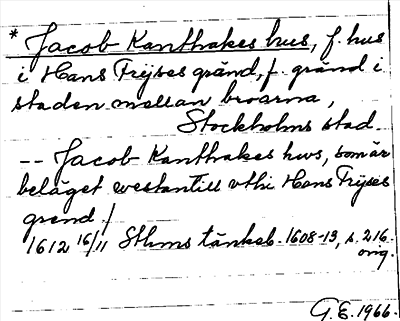 * Jacob Kanthakes hus, f. hus
i Hans Frijses gränd, f. gränd i
staden mellan broarna,
Stockholms stad.
-- Jacob Kanthakes hws, som är
beläget westantill vthi Hans Frijses
grend /
1612 16/11 Sthms tänkeb. 1608-13, s. 216.
orig.
G. E. 1966.